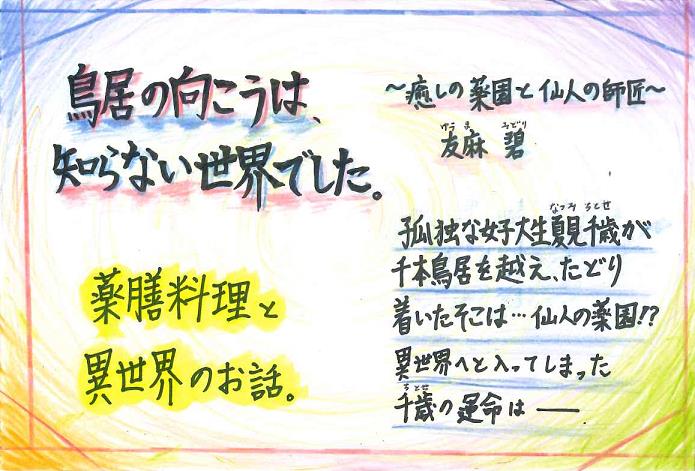 鳥居の向こうは、
知らない世界でした。
～癒しの薬園と仙人の師匠～
友麻 碧
薬膳料理と
異世界のお話。
孤独な女子大生夏見千歳が
千本鳥居を越え、たどり
着いたそこは…仙人の薬園!?
異世界へと入ってしまった
千歳の運命は――